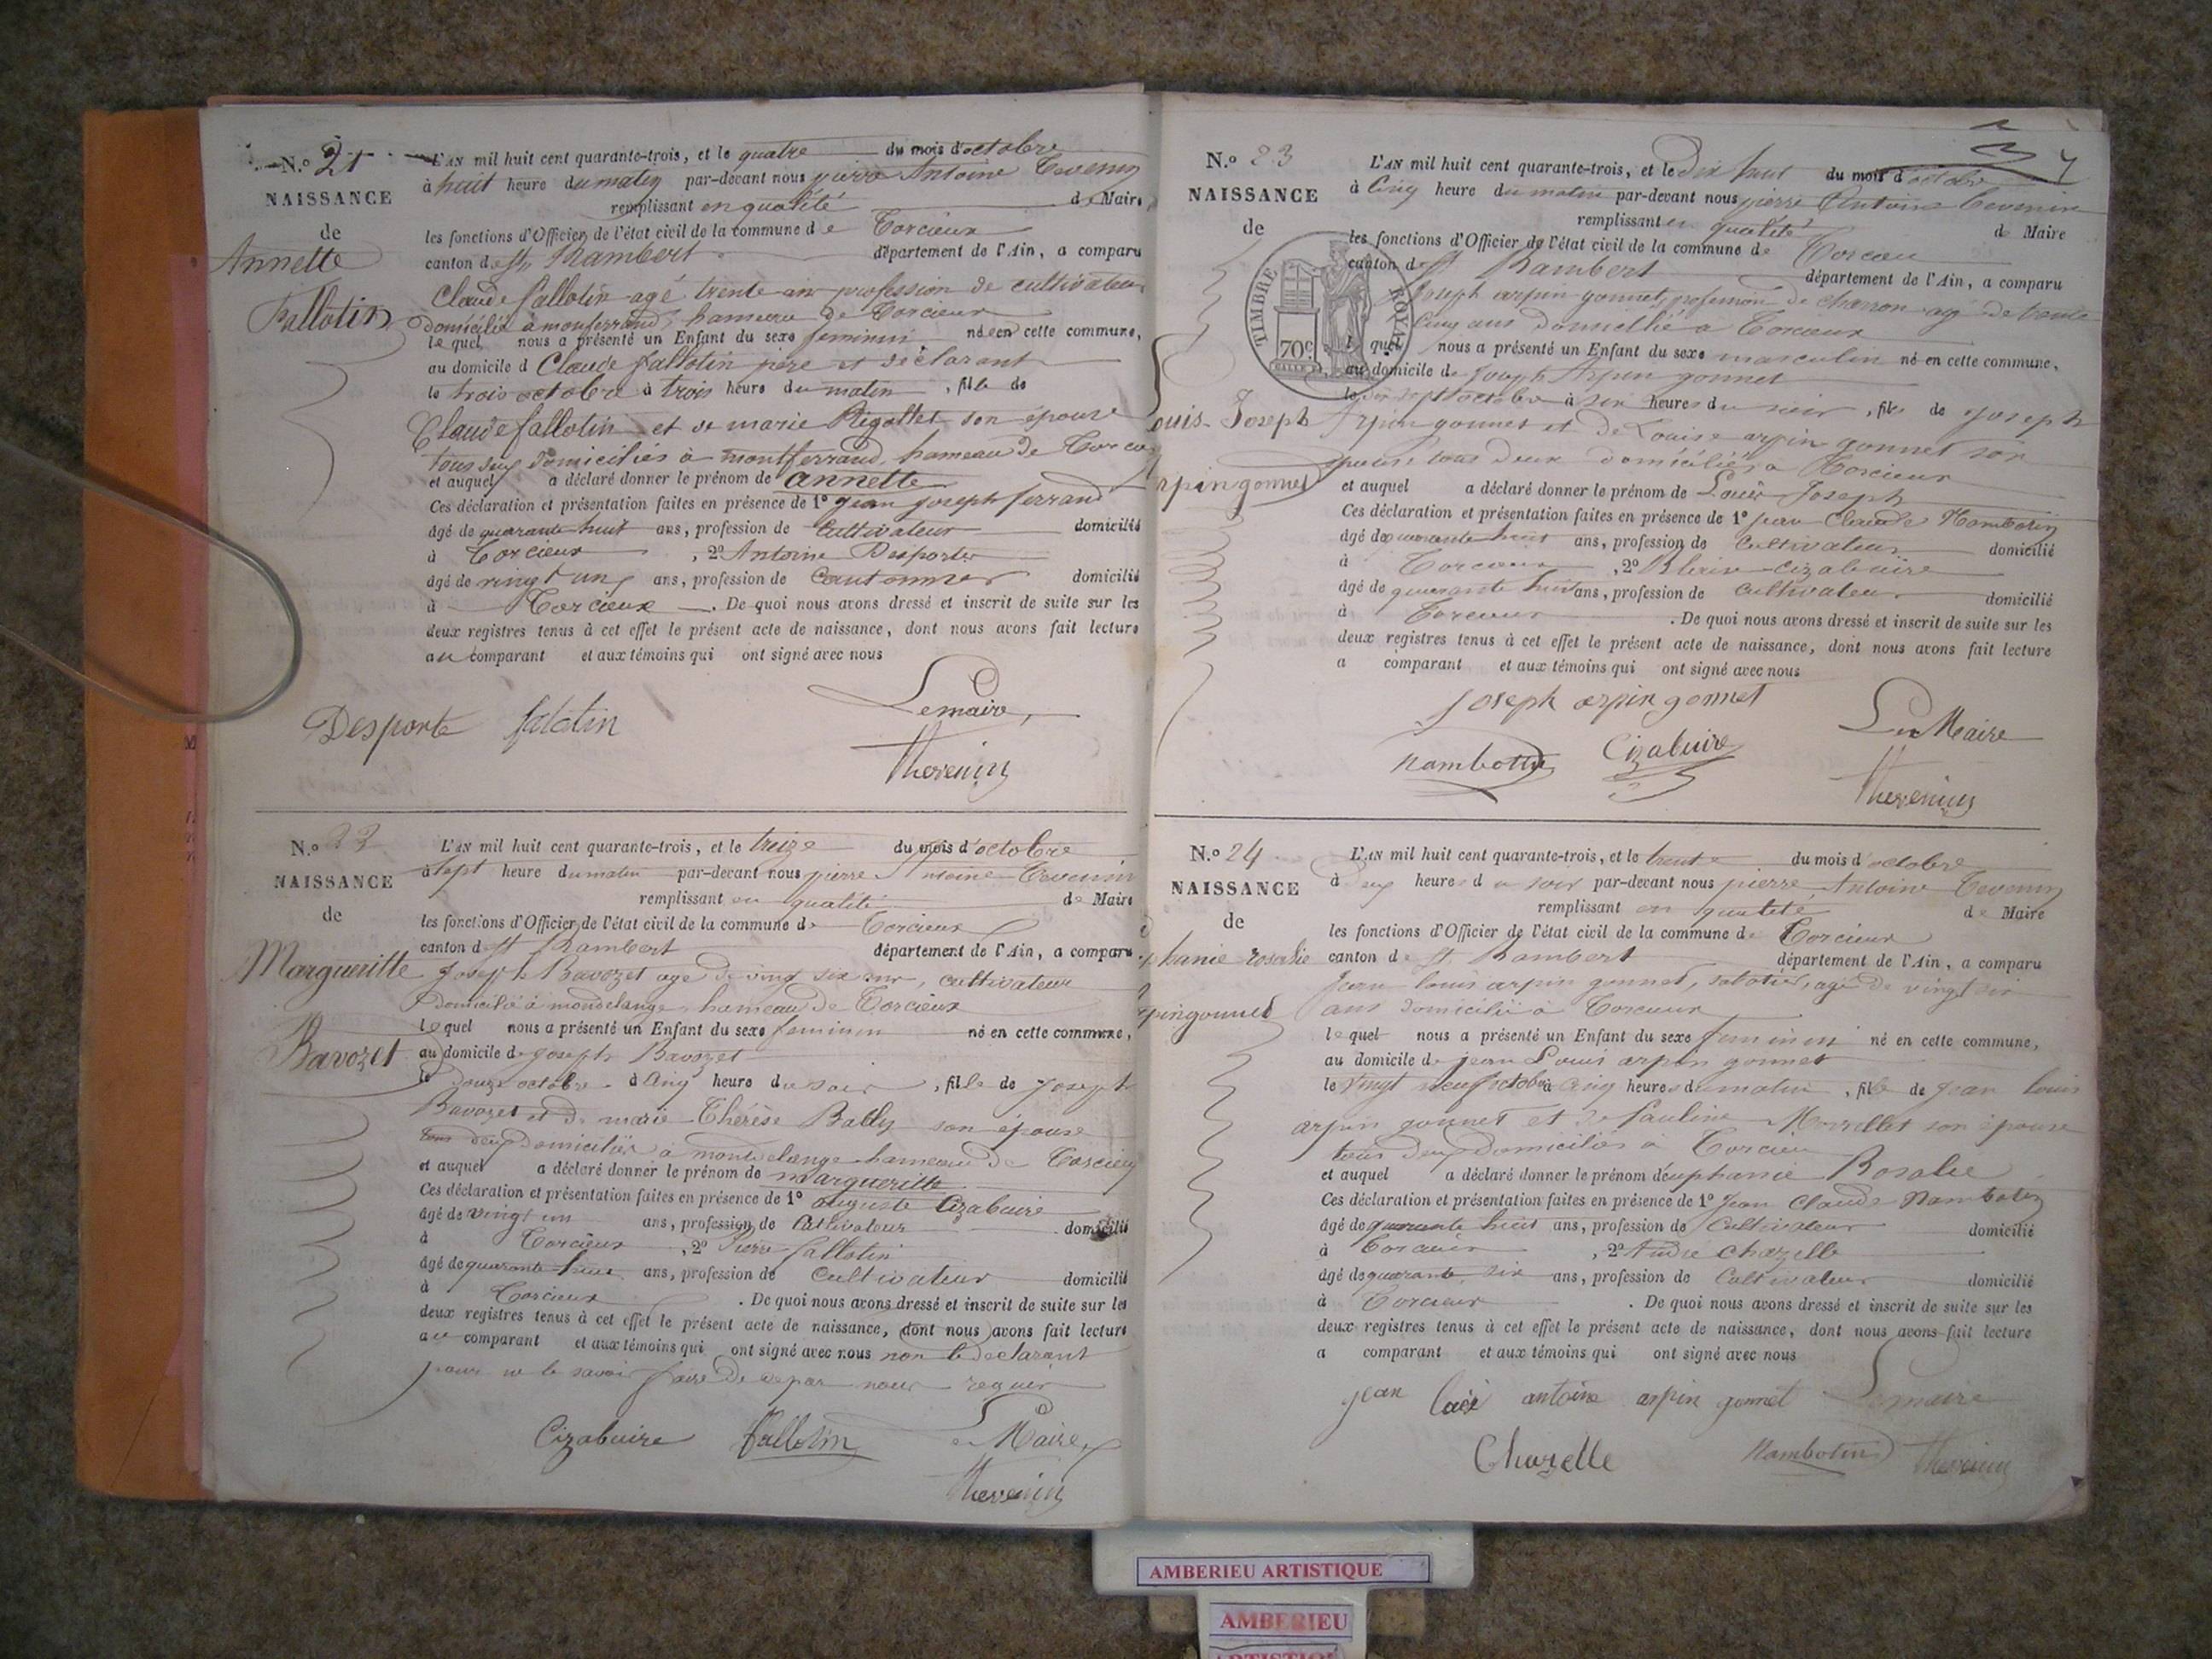 N.o 21
NAISSANCE
de
Annette
Fallotin
L'AN mil huit cent quarante-trois, et le quatre du mois d'octobre
à huit heure du matin par-devant nous pierre Antoine Tevenin
remplissant en qualité de Maire
les fonctions d'Officier de l'état civil de la commune de Torcieux
canton de St Rambert département de l'Ain, a comparu
Claude fallotin agé trente ans profession de cultivateur
domicilié à montferrand hameau de Torcieux
le quel nous a présenté un Enfant du sexe feminin né en cette commune,
au domicile d Claude fallotin père et déclarant
le trois octobre à trois heure du matin, fille de
Claude fallotin et de marie Rigollet son épouse
tous deux domiciliés à montferrand hameau de Torcieux
et auquel a déclaré donner le prénom de annette
Ces déclaration et présentation faites en présence de 1o jean joseph ferrand
âgé de quarante huit ans, profession de Cultivateur domicilié
à Torcieux, 2o Antoine Desporte
âgé de vingt un ans, profession de Cantonnier domicilié
à Torcieux. De quoi nous avons dressé et inscrit de suite sur les
deux registres tenus à cet effet le présent acte de naissance, dont nous avons fait lecture
au comparant et aux témoins qui ont signé avec nous
Desporte falotin Lemaire
Thevenin
N.o
NAISSANCE
de
Margueritte
Bavozet
L'AN mil huit cent quarante-trois, et le treize du mois d'octobre
à sept heure du matin par-devant nous pierre Antoine Tevenin
remplissant en qualité de Maire
les fonctions d'Officier de l'état civil de la commune de Torcieux
canton de St Rambert département de l'Ain, a comparu
Joseph Bavozet age de vingt six ans, cultivateur
domicilié à hameau de Torcieux
le quel nous a présenté un Enfant du sexe feminin né en cette commune,
au domicile de Joseph Bavozet
le douze octobre à cinq heure du soir, fille de Joseph
Bavozet et de marie Thérèse Bally son épouse
tous deux domiciliés à hameau de Torcieux
et auquel a déclaré donner le prénom de margueritte
Ces déclaration et présentation faites en présence de 1o auguste Cizabuire
âgé de vingt un ans, profession de Cultivateur domicilié
à Torcieux, 2o Pierre fallotin
âgé de quarante huit ans, profession de Cultivateur domicilié
à Torcieux. De quoi nous avons dressé et inscrit de suite sur les
deux registres tenus à cet effet le présent acte de naissance, dont nous avons fait lecture
au comparant et aux témoins qui ont signé avec nous non le declarant
pour ne le savoir faire de ce par nous requis
Cizabuire fallotin Le Maire
Thevenin
N.o 23
NAISSANCE
de
TIMBRE ROYAL
70c
ouis Joseph
rpingonnet
L'AN mil huit cent quarante-trois, et le dix huit du mois d'octobre
à Cinq heure du matin par-devant nous pierre Antoine Tevenin
remplissant en qualité de Maire
les fonctions d'Officier de l'état civil de la commune de Torcieu
canton de St Rambert département de l'Ain, a comparu
Joseph arpin gonnet, profession de charron agé de trente
cinq ans domicilié à Torcieux
le quel nous a présenté un Enfant du sexe masculin né en cette commune,
au domicile de Joseph Arpin gonnet
le dix sept octobre à six heures du soir, fils de Joseph
Arpin gonnet et de Louise arpin gonnet son
épouse tous deux domiciliés à Torcieux
et auquel a déclaré donner le prénom de Louis Joseph
Ces déclaration et présentation faites en présence de 1o jean Claude Nambotin
âgé de quarante huit ans, profession de Cultivateur domicilié
à Torcieux, 2o Cizabuire
âgé de quarante huit ans, profession de Cultivateur domicilié
à Torcieux. De quoi nous avons dressé et inscrit de suite sur les
deux registres tenus à cet effet le présent acte de naissance, dont nous avons fait lecture
a comparant et aux témoins qui ont signé avec nous
joseph arpin gonnet
Nambotin Cizabuire Le Maire
Thevenin
N.o 24
NAISSANCE
de
phanie rosalie
rpingonnet
L'AN mil huit cent quarante-trois, et le trente du mois d'octobre
à deux heures du soir par-devant nous pierre Antoine Tevenin
remplissant en qualité de Maire
les fonctions d'Officier de l'état civil de la commune de Torcieux
canton de St Rambert département de l'Ain, a comparu
Jean louis arpin gonnet, sabotier, agé de vingt six
ans domicilié à Torcieux
le quel nous a présenté un Enfant du sexe feminin né en cette commune,
au domicile de jean Louis arpin gonnet
le vingt neuf octobre à cinq heures du matin, fille de Jean louis
arpin gonnet et de Pauline son épouse
tous deux domiciliés à Torcieu
et auquel a déclaré donner le prénom d'euphanie Rosalie
Ces déclaration et présentation faites en présence de 1o Jean Claude Nambotin
âgé de quarante huit ans, profession de Cultivateur domicilié
à Torcieux, 2o André Chazelle
âgé de quarante six ans, profession de Cultivateur domicilié
à Torcieux. De quoi nous avons dressé et inscrit de suite sur les
deux registres tenus à cet effet le présent acte de naissance, dont nous avons fait lecture
a comparant et aux témoins qui ont signé avec nous
jean antoine arpin gonnet Lemaire
Chazelle Nambotin Thevenin
AMBERIEU ARTISTIQUE
AMBERIEU
ARTISTIQUE